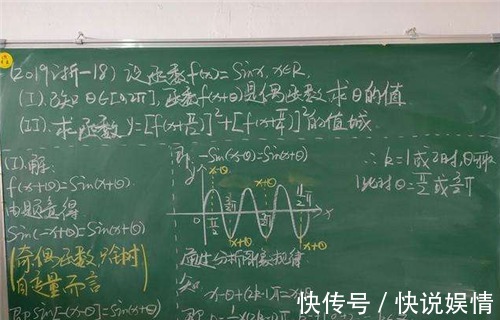 (2019浙-18) 设函数f(x)=Sinx, x∈R.
(I).已知θ∈[0,2π],函数f(x+θ)是偶函数 求θ的值
(II).求函数y=[f(x+π/12)]²+[f(x+π/4)]²的值域
(I).解:
f(x+θ)=Sin(x+θ)
由题意得
Sin(-x+θ)=Sin(x+θ)
(奇偶函数,只针对
自变量而言)
即Sin[-(x-θ)]=Sin(x+θ)
即-Sin(x-θ)=Sin(x+θ)
y
x-θ
x+θ
x
0
π/2
x+θ
通过分析图像规律
x-θ+(2k-1)π=x+θ
∴k=1或2时,
此时θ=π/2或3/2π
快传号/快说娱情